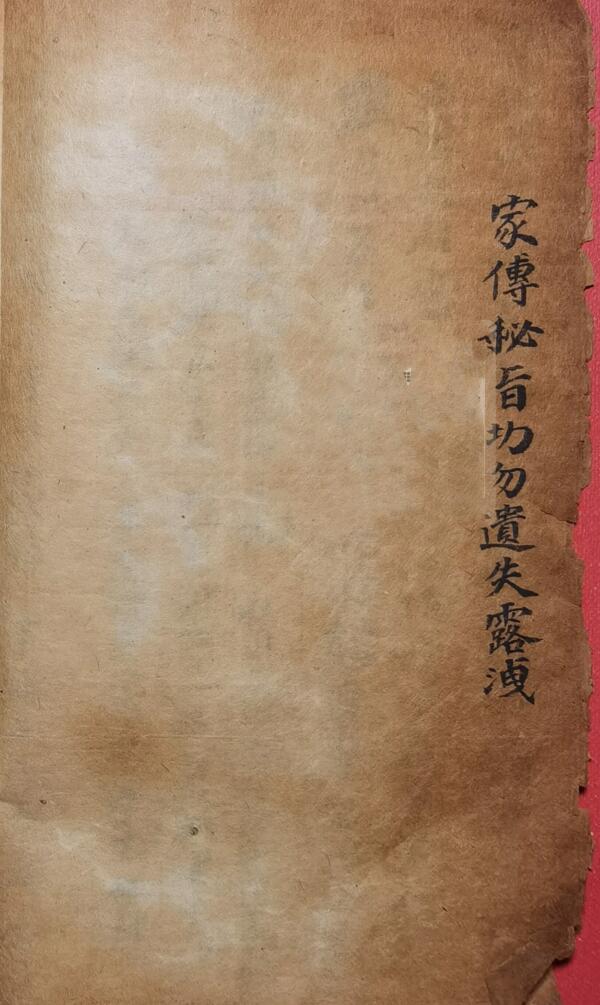 家傳秘旨切勿遺失露洩